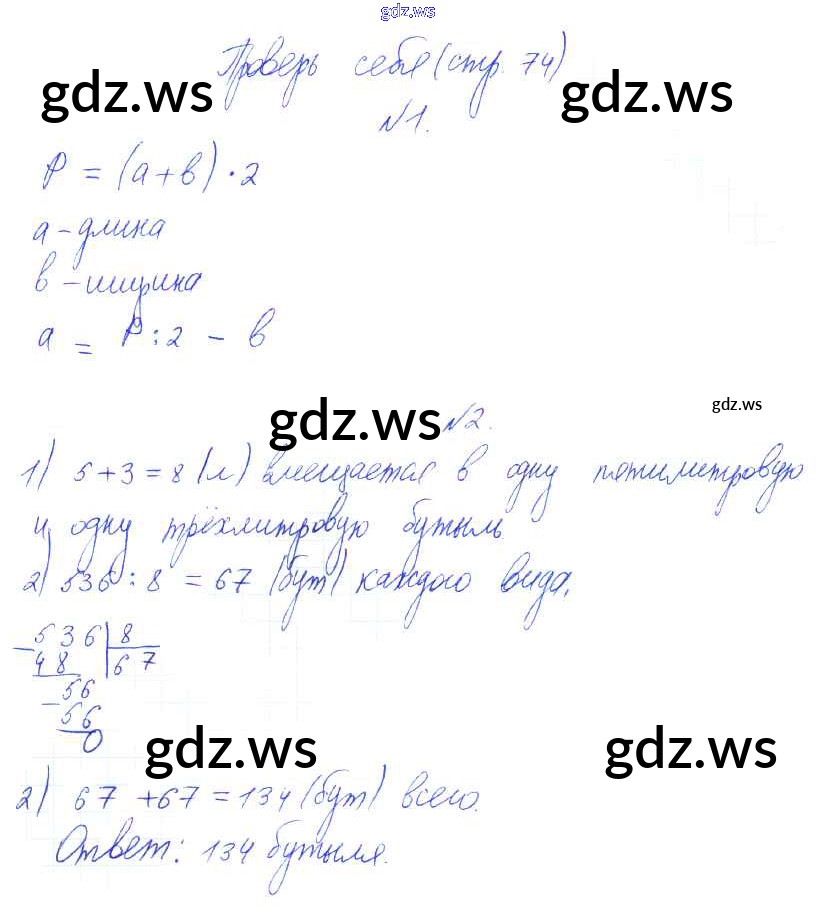 gdz.ws
Проверь себя (стр. 74)
gdz.ws gdz.ws
№1.
P = (a + в) · 2
a - длина
в - ширина
a = P : 2 - в
gdz.ws
gdz.ws
№2.
1) 5 + 3 = 8 (л) вмещается в одну пятилитровую
и одну трёхлитровую бутыль
2) 536 : 8 = 67 (бут) каждого вида.
536 | 8
48 | 67
56
56
0
gdz.ws gdz.ws
2) 67 + 67 = 134 (бут) всего.
Ответ: 134 бутыля.